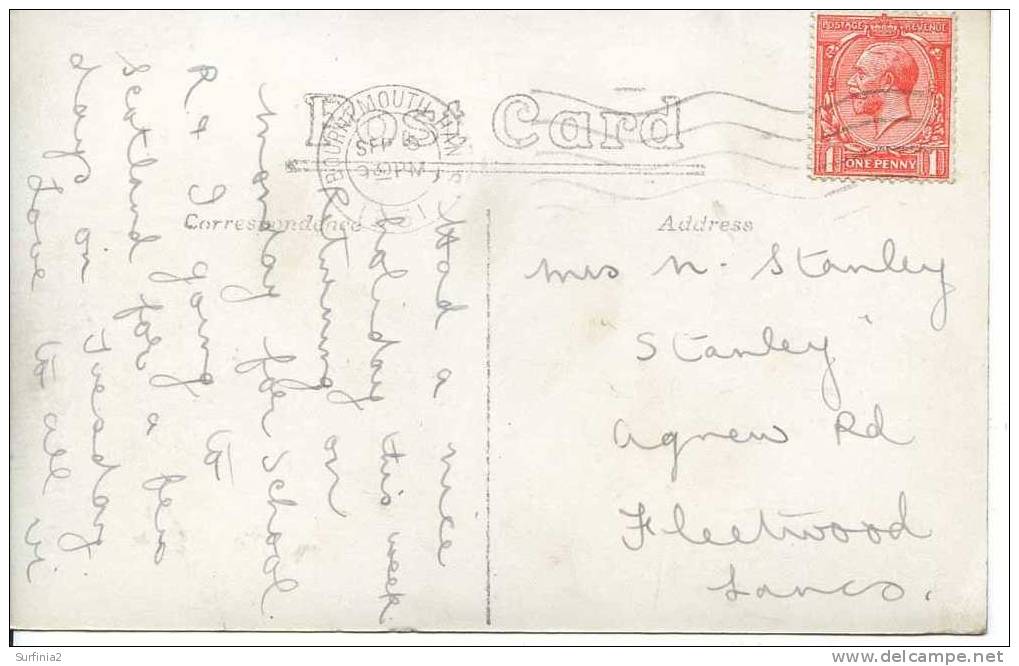 POSTAGE REVENUE
1 ONE PENNY 1
Post Card
BOURNEMOUTH
SEP
9 30 PM
Correspondence
Address
Mrs N. Stanley
"Stanley"
Agnew Rd
Fleetwood
Lancs.
Had a nice
holiday this week
Returning on
Monday for School
R & I going to
Scotland for a few
days on Tuesday
love to all
Surfinia2
delcampe.net